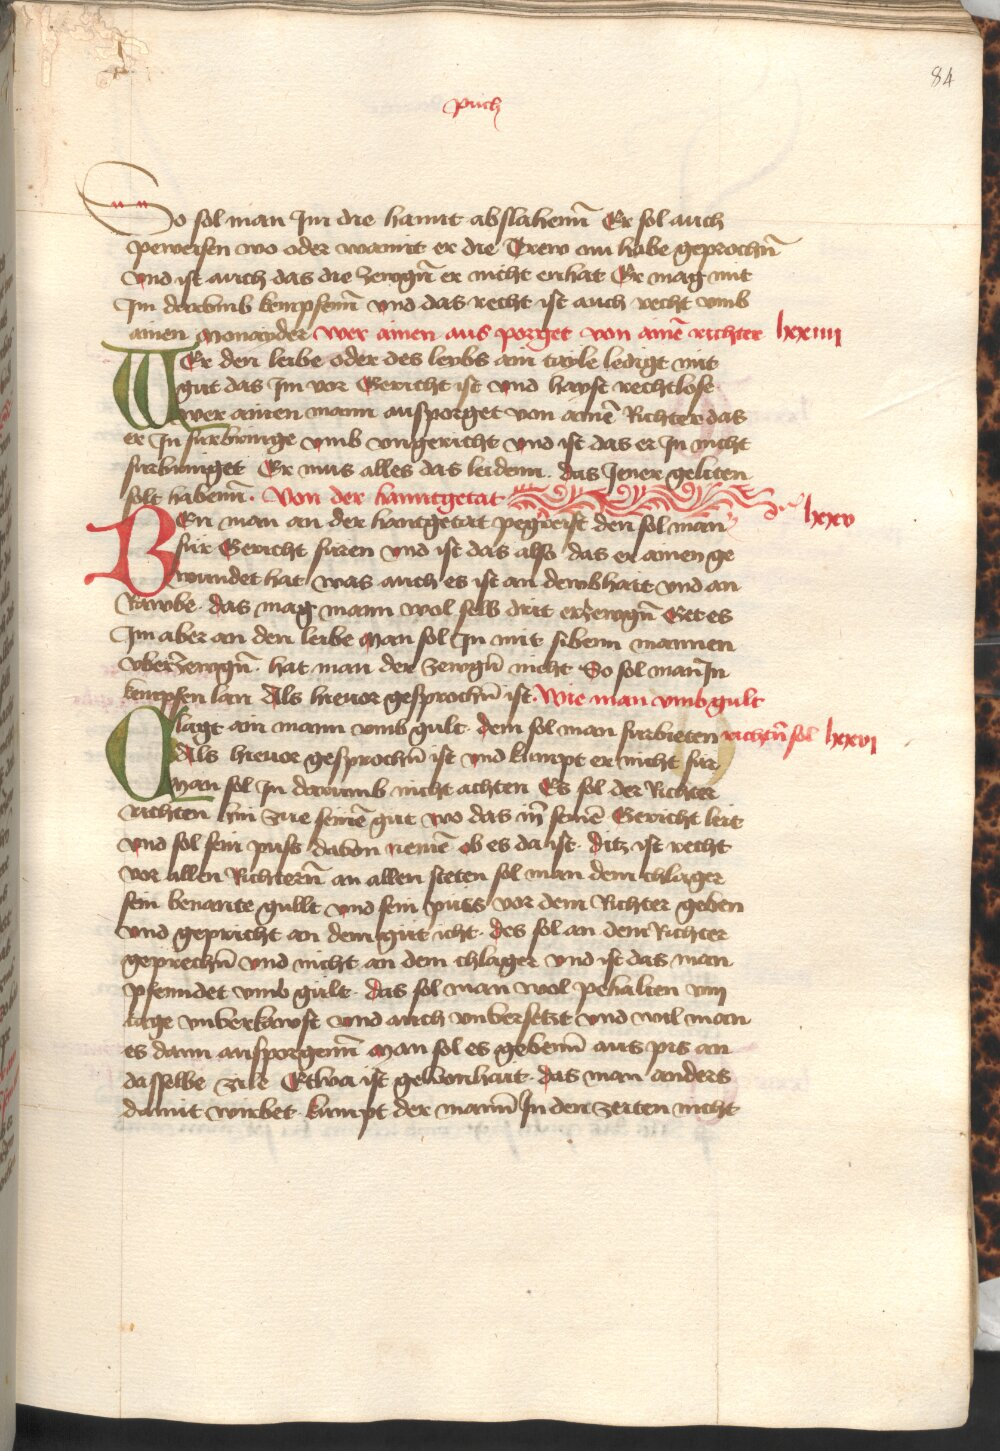 84
puch
So sol man Im die hannt abslahenn̄ Er sol auch
peweisen wo oder wamit er die Trew an habe geprochn̄
vnd ist auch das die zewgn̄ er nicht enhat Er mag mit
Im darumb kempfenn̄ vnd das recht ist auch recht vmb
ainen Monayder Wer ainen aus porget von amē richter lxxiiii
WEr den leibe oder des leybs ain tayle ledigt mit
gut das Im vor Gericht ist vnd hayst rechtlose
wer ainen mann ausporget von ainē Richter das
er In furbringe vmb vngericht vnd ist das er In nicht
furbringet Er mus alles das leidenn. das Jener geliten
solt habenn̄. Von der hanntgetat lxxv
DEn man an der hantgetat pegreift den sol man
für Gericht füren vnd ist das also das er ainen ge
wundet hat was auch es ist an dewbhait vnd an
Rawbe. das mag mann wol selb drit erzewgn̄ Get es
Im aber an den leibe Man sol In mit sibenn mannen
vberzewgn̄. hat man der zewgn̄ nicht So sol man In
kempfen lan Als hieuor gesprochn̄ ist. Wie man vmb gult
Clagt ain mann vmb gult. dem sol man furbieten richtn̄ sol lxxvi
Als hieuor gesprochn̄ ist vnd kumpt er nicht für
Man sol In darumb nicht achten Es sol der Richter
richten hin zue seinē gut wo das in̄ seinē Gericht leit
vnd sol sein puss dauon nemē ob es da ist. ditz ist recht
vor allen Richternn̄ an allen steten sol man dem chlager
sein benante gullt vnd sein puss vor dem Richter geben
vnd gepricht an dem gut icht. des sol an dem Richter
geprechn̄ vnd nicht an dem chlager vnd ist das man
pfenndet vmb gult. das sol man wol pehalten viij
tage vnberkawft vnd auch vnbersetzt vnd wil man
es dann ausporgenn̄ Man sol es gebenn̄ aus pis an
dasselbe zile Etwa ist gewonhait. das man anders
damit wirbet. kumpt der mann̄ In den zeiten nicht